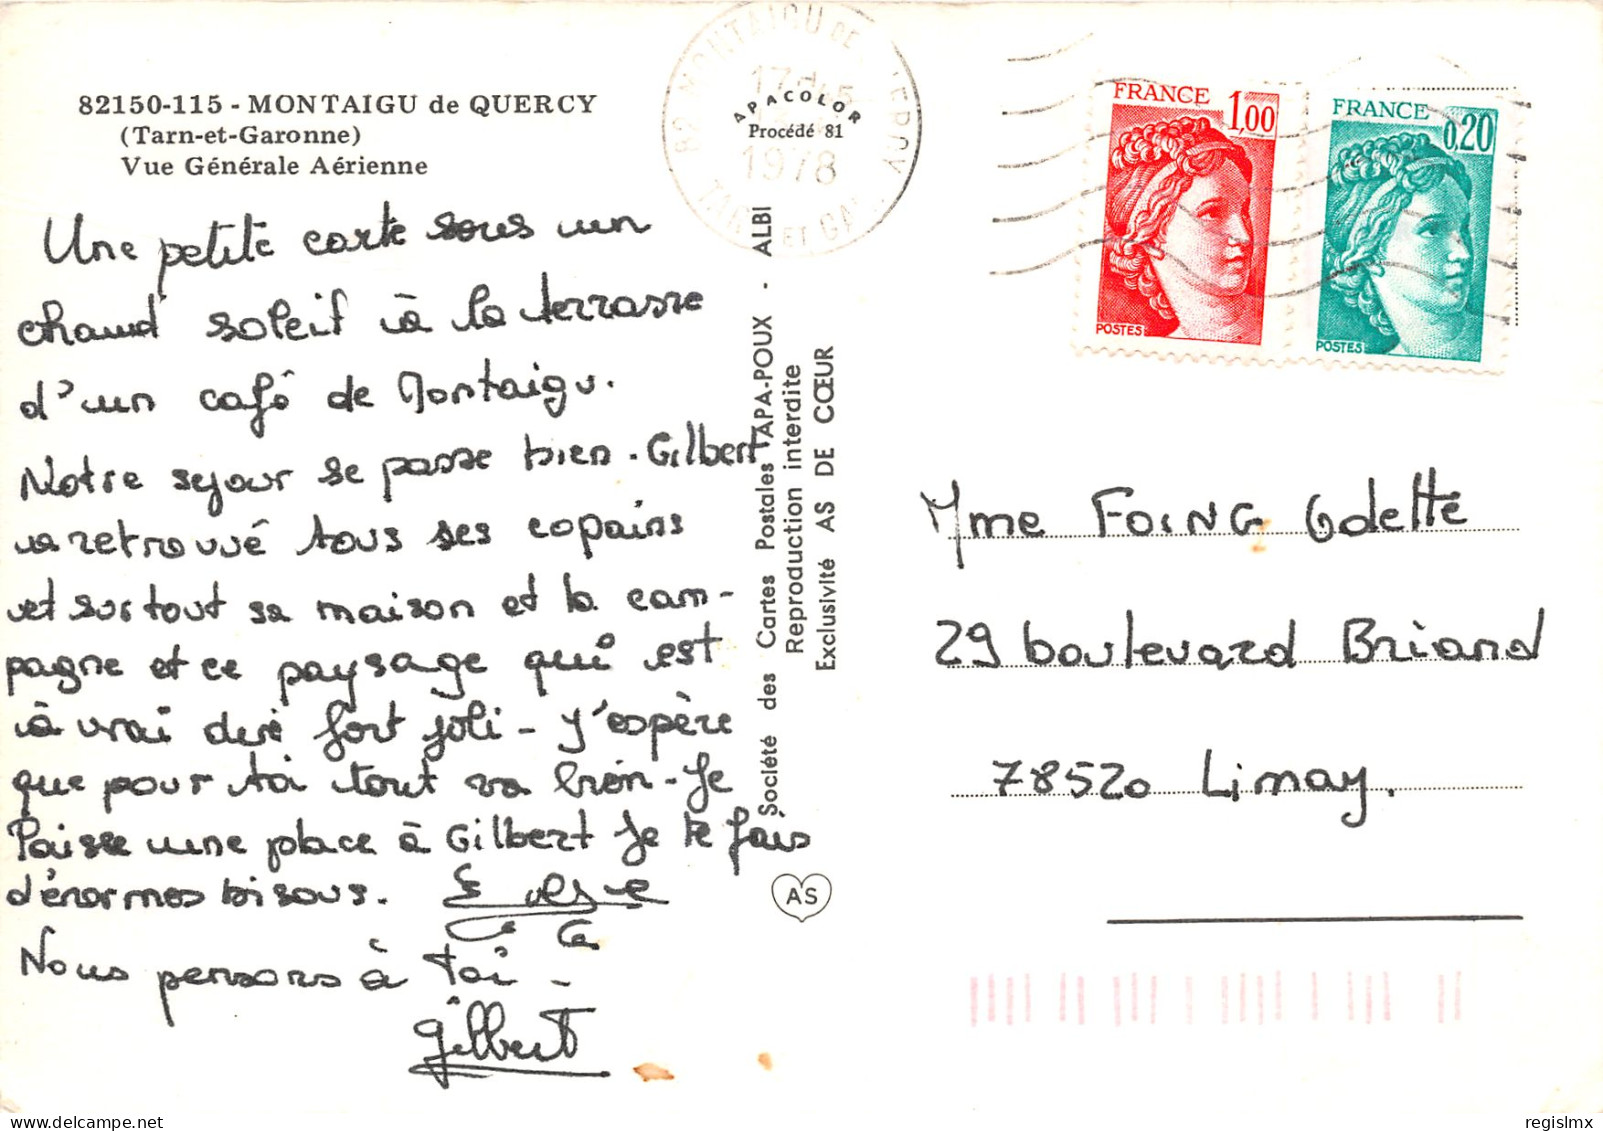 82150-115 - MONTAIGU de QUERCY
(Tarn-et-Garonne)
Vue Générale Aérienne
Une petite carte sous un
chaud soleil à la terrasse
d'un café de Montaigu.
Notre séjour se passe bien. Gilbert
a retrouvé tous ses copains
et surtout sa maison et la cam-
pagne et ce paysage qui est
à vrai dire fort joli - J'espère
que pour toi tout va bien - Je
laisse une place à Gilbert Je te fais
d'énormes bisous.
Nous pensons à toi -
Gilbert
Société des Cartes Postales APA-POUX - ALBI
Reproduction interdite
Exclusivité AS DE CŒUR
AS
82 MONTAIGU DE QUERCY
17
1978
TARN ET GAR.
APACOLOR
Procédé 81
FRANCE 1,00
POSTES
FRANCE 0,20
POSTES
Mme FOING Odette
29 boulevard Briand
78520 Limay.
regislmx
delcampe.net